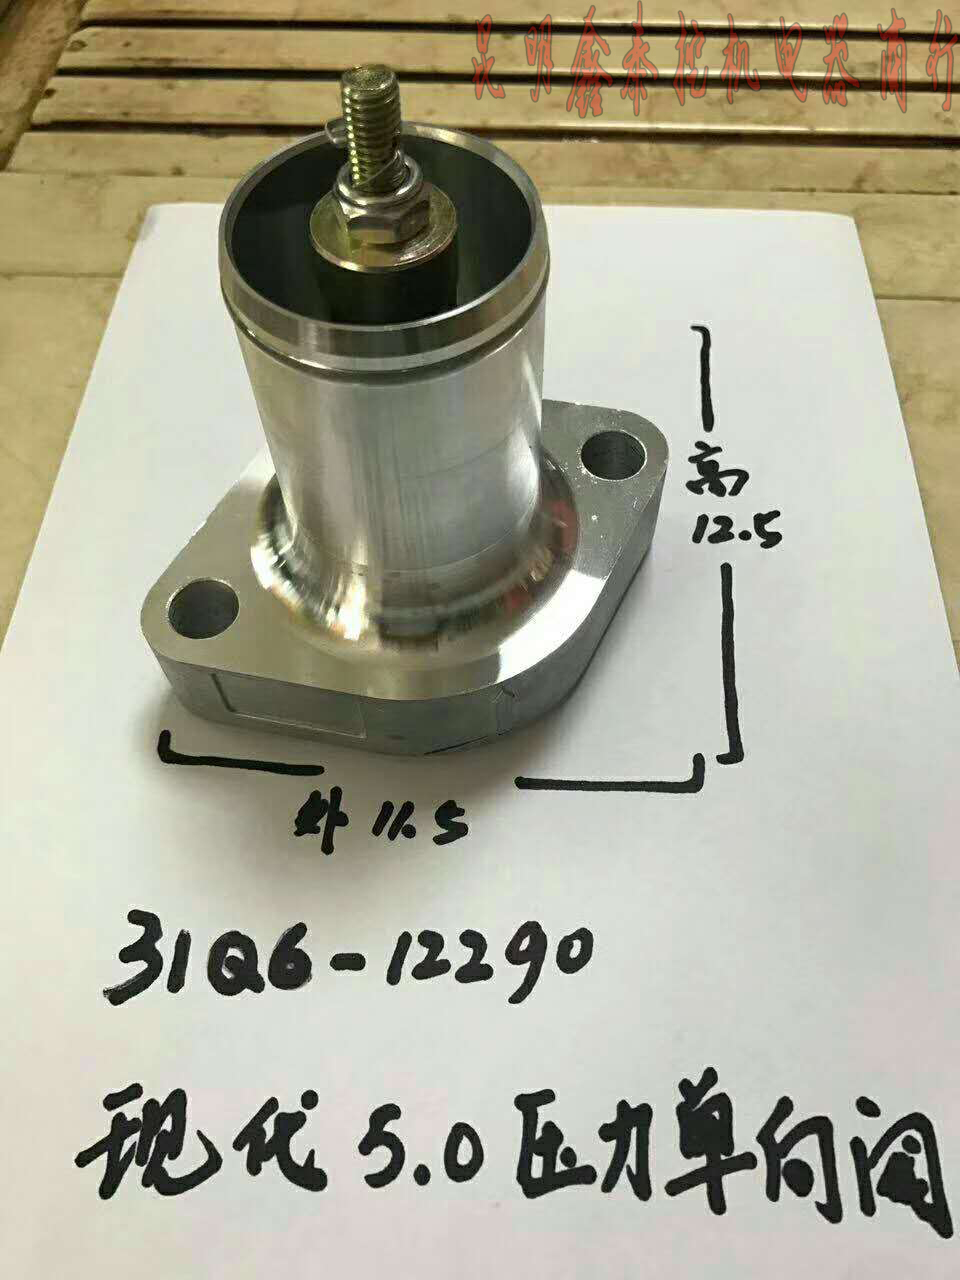 昆明鑫泰挖机电器商行
高
12.5
外 11.5
31Q6-12290
现代 5.0 压力单向阀